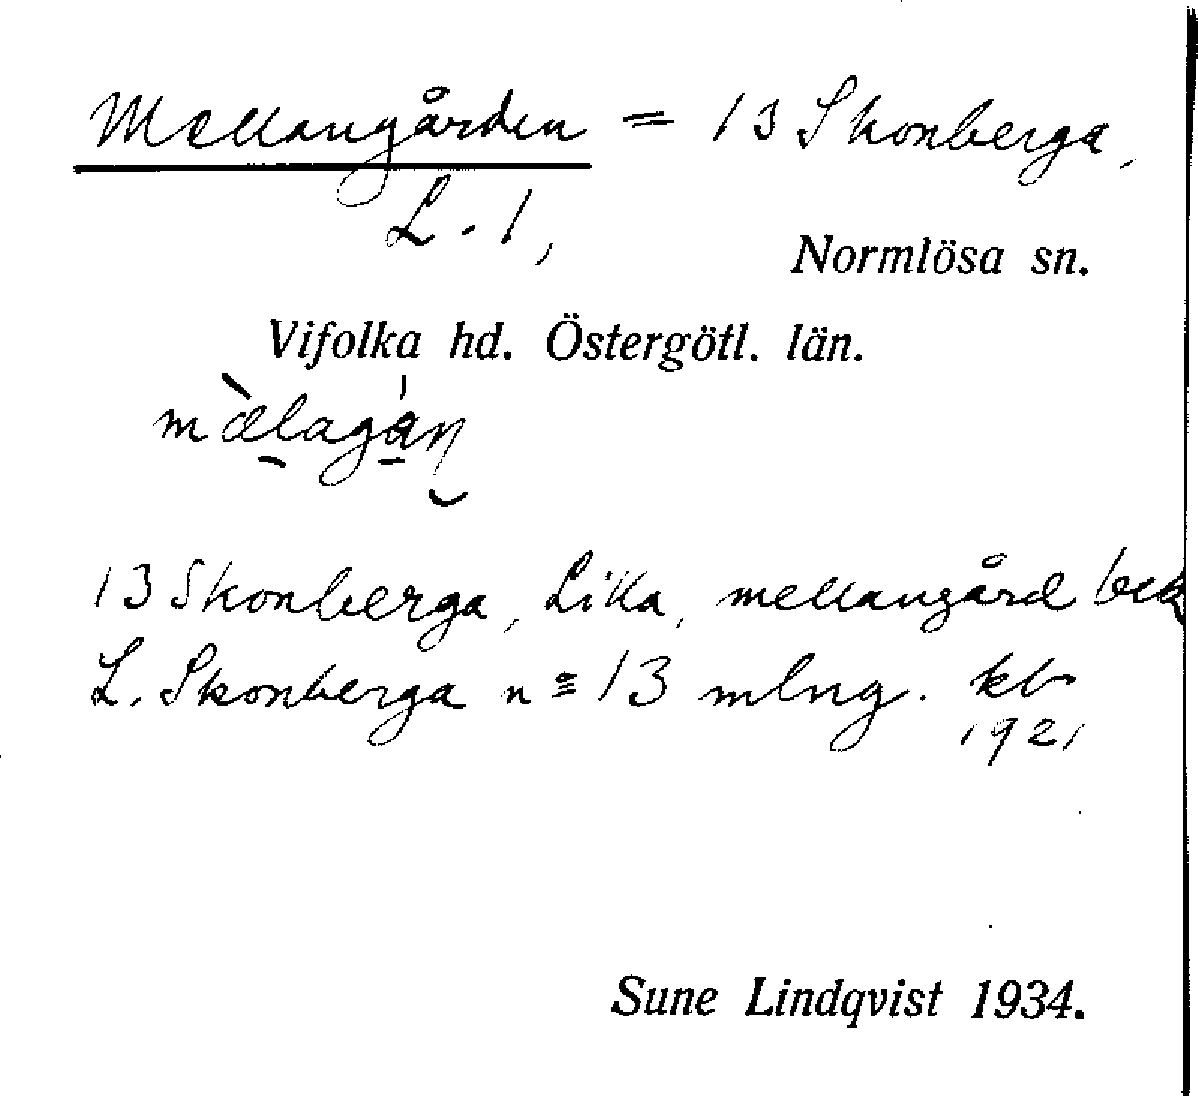 Mellangården = 13 Skonberga,
L. 1,
Normlösa sn.
Vifolka hd. Östergötl. län.
mælagan
13 Skonberga, Lilla, mellangård
L. Skonberga n≡13 mlng. kb
1921
Sune Lindqvist 1934.